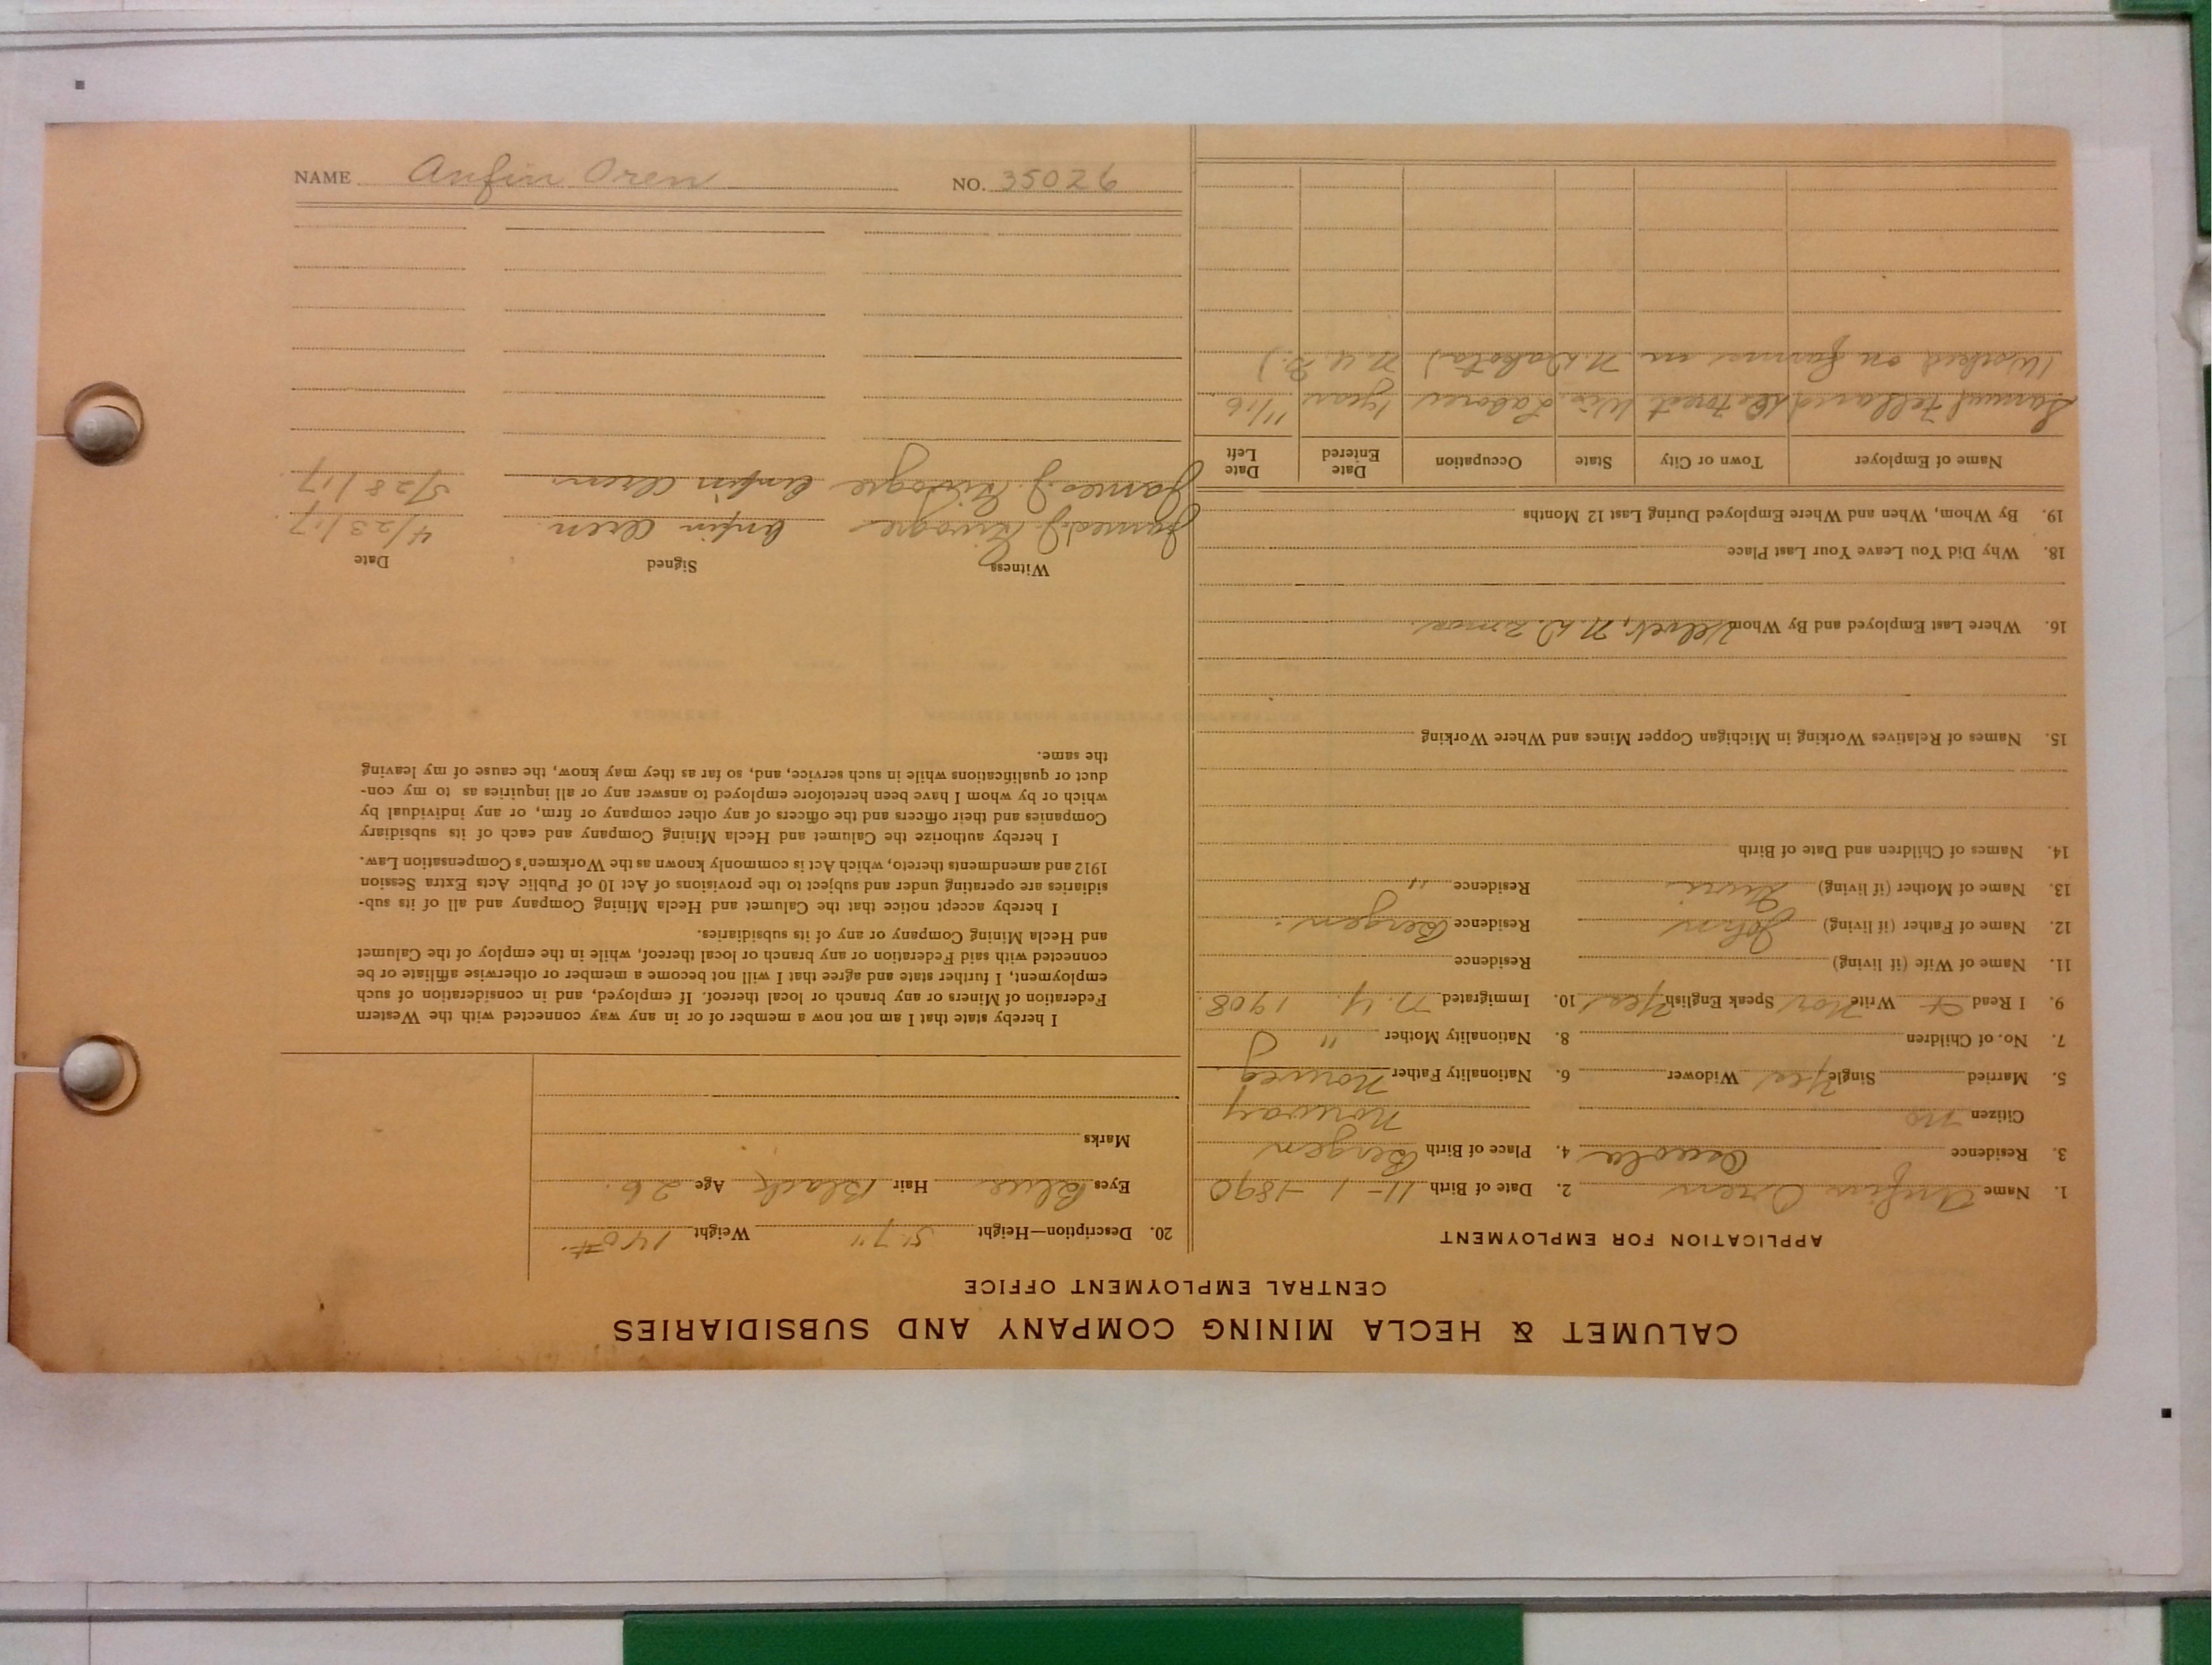 CALUMET & HECLA MINING COMPANY AND SUBSIDIARIES
CENTRAL EMPLOYMENT OFFICE
APPLICATION FOR EMPLOYMENT
1. Name Anfin Oren 2. Date of Birth 11-1-1890
3. Residence Osceola 4. Place of Birth Bergen
Citizen no Norway
5. Married Single Yes Widower 6. Nationality Father Norweg
7. No. of Children 8. Nationality Mother "
9. I Read & Write Nor Speak English Yes 10. Immigrated N.Y. 1908.
11. Name of Wife (if living) Residence
12. Name of Father (if living) John Residence Bergen
13. Name of Mother (if living) Residence "
14. Names of Children and Date of Birth
15. Names of Relatives Working in Michigan Copper Mines and Where Working
16. Where Last Employed and By Whom Velvet, N.D. 2 mos.
18. Why Did You Leave Your Last Place
19. By Whom, When and Where Employed During Last 12 Months
Name of Employer Town or City State Occupation Date Entered Date Left
Samuel Felland De Forest Wis. Laborer 1 year 11/16
(Worked on farms in N. Dakota)
20. Description—Height 5'7" Weight 140#
Eyes Blue Hair Black Age 26.
Marks
I hereby state that I am not now a member of or in any way connected with the Western
Federation of Miners or any branch or local thereof. If employed, and in consideration of such
employment, I further state and agree that I will not become a member or otherwise affiliate or be
connected with said Federation or any branch or local thereof, while in the employ of the Calumet
and Hecla Mining Company or any of its subsidiaries.
I hereby accept notice that the Calumet and Hecla Mining Company and all of its sub-
sidiaries are operating under and subject to the provisions of Act 10 of Public Acts Extra Session
1912 and amendments thereto, which Act is commonly known as the Workmen's Compensation Law.
I hereby authorize the Calumet and Hecla Mining Company and each of its subsidiary
Companies and their officers and the officers of any other company or firm, or any individual by
which or by whom I have been heretofore employed to answer any or all inquiries as to my con-
duct or qualifications while in such service, and, so far as they may know, the cause of my leaving
the same.
Witness Signed Date
James J. Anfin Oren 4/23/17
James J. Anfin Oren 5/28/17
NAME Anfin Oren NO. 35026